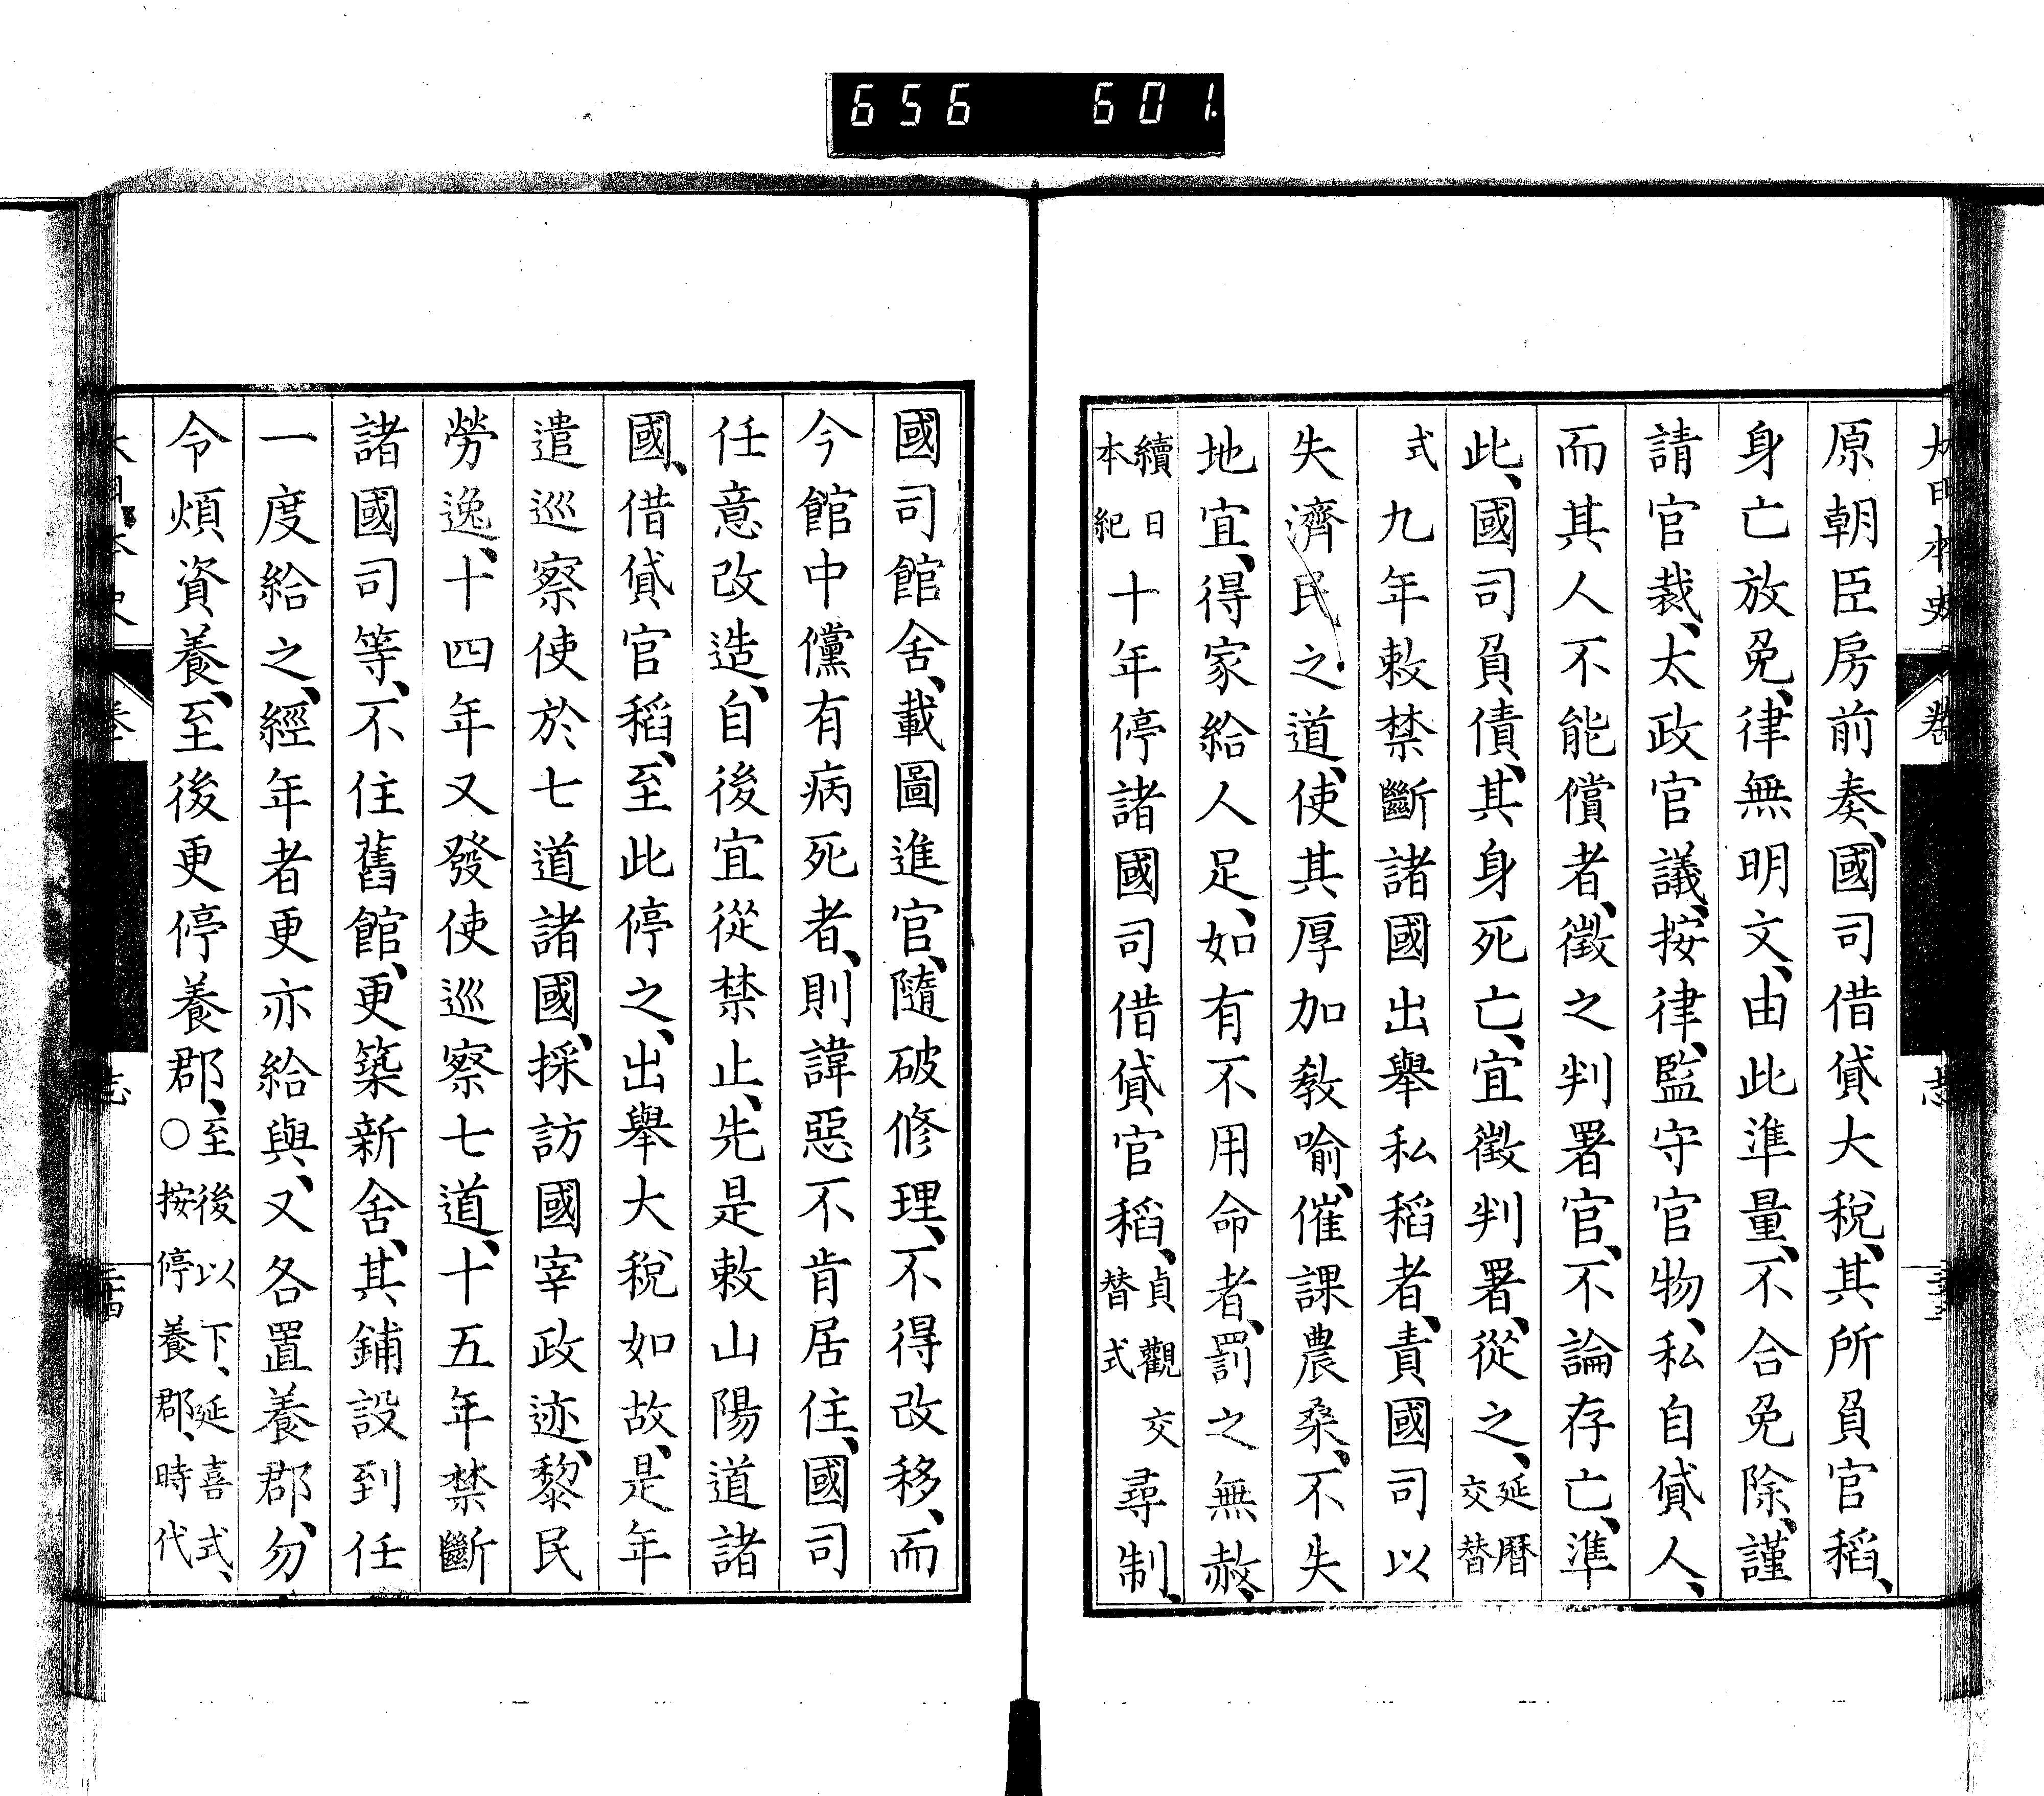 656 601
原朝臣房前奏、國司借貸大稅、其所負官稻、
身亡放免、律無明文、由此準量、不合免除、謹
請官裁、太政官議、按律、監守官物、私自貸人、
而其人不能償者、徵之判署官、不論存亡、準
此、國司負債、其身死亡、宜徵判署、從之、延曆交替
式九年敕禁斷諸國出舉私稻者、責國司以
失濟民之道、使其厚加敎喻、催課農桑、不失
地宜、得家給人足、如有不用命者、罰之無赦、
續日本紀十年停諸國司借貸官稻、貞觀交替式尋制、
國司館舍、載圖進官、隨破修理、不得改移、而
今館中儻有病死者、則諱惡不肯居住、國司
任意改造、自後宜從禁止、先是敕山陽道諸
國、借貸官稻、至此停之、出舉大稅如故、是年
遣巡察使於七道諸國、採訪國宰政迹、黎民
勞逸、十四年又發使巡察七道、十五年禁斷
諸國司等、不住舊館、更築新舍、其鋪設到任
一度給之、經年者更亦給與、又各置養郡、勿
令煩資養、至後更停養郡、至後以下、延喜式、○按停養郡、時代